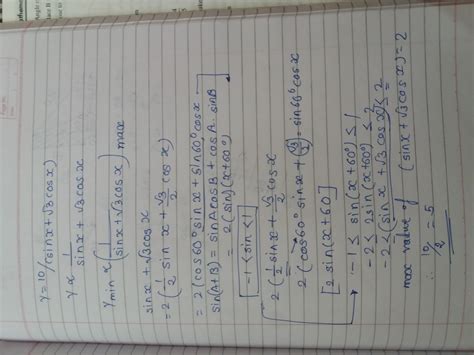 y = 10/(sinx + √3 cosx)
y ∝ 1/(sinx + √3 cosx)
ymin ∝ (1/(sinx + √3 cosx)) max
sinx + √3 cosx
= 2 (1/2 sinx + √3/2 cosx)
= 2 (cos60° sinx + sin60° cosx
sin(A+B) = sinA cosB + cosA . sinB
= 2 (sin)(x+60°)
-1 < sin < 1
2 (1/2 sinx + √3/2 cosx
2 (cos60° sinx + (√3/2) = sin60° cosx
[2 sin(x+60]
∴ -1 ≤ sin(x+60°) ≤ 1
-2 ≤ 2sin(x+60°) ≤ 2
-2 ≤ (sinx + √3 cosx) ≤ 2
max value of (sinx + √3 cosx) = 2
∴ 10/2 = 5